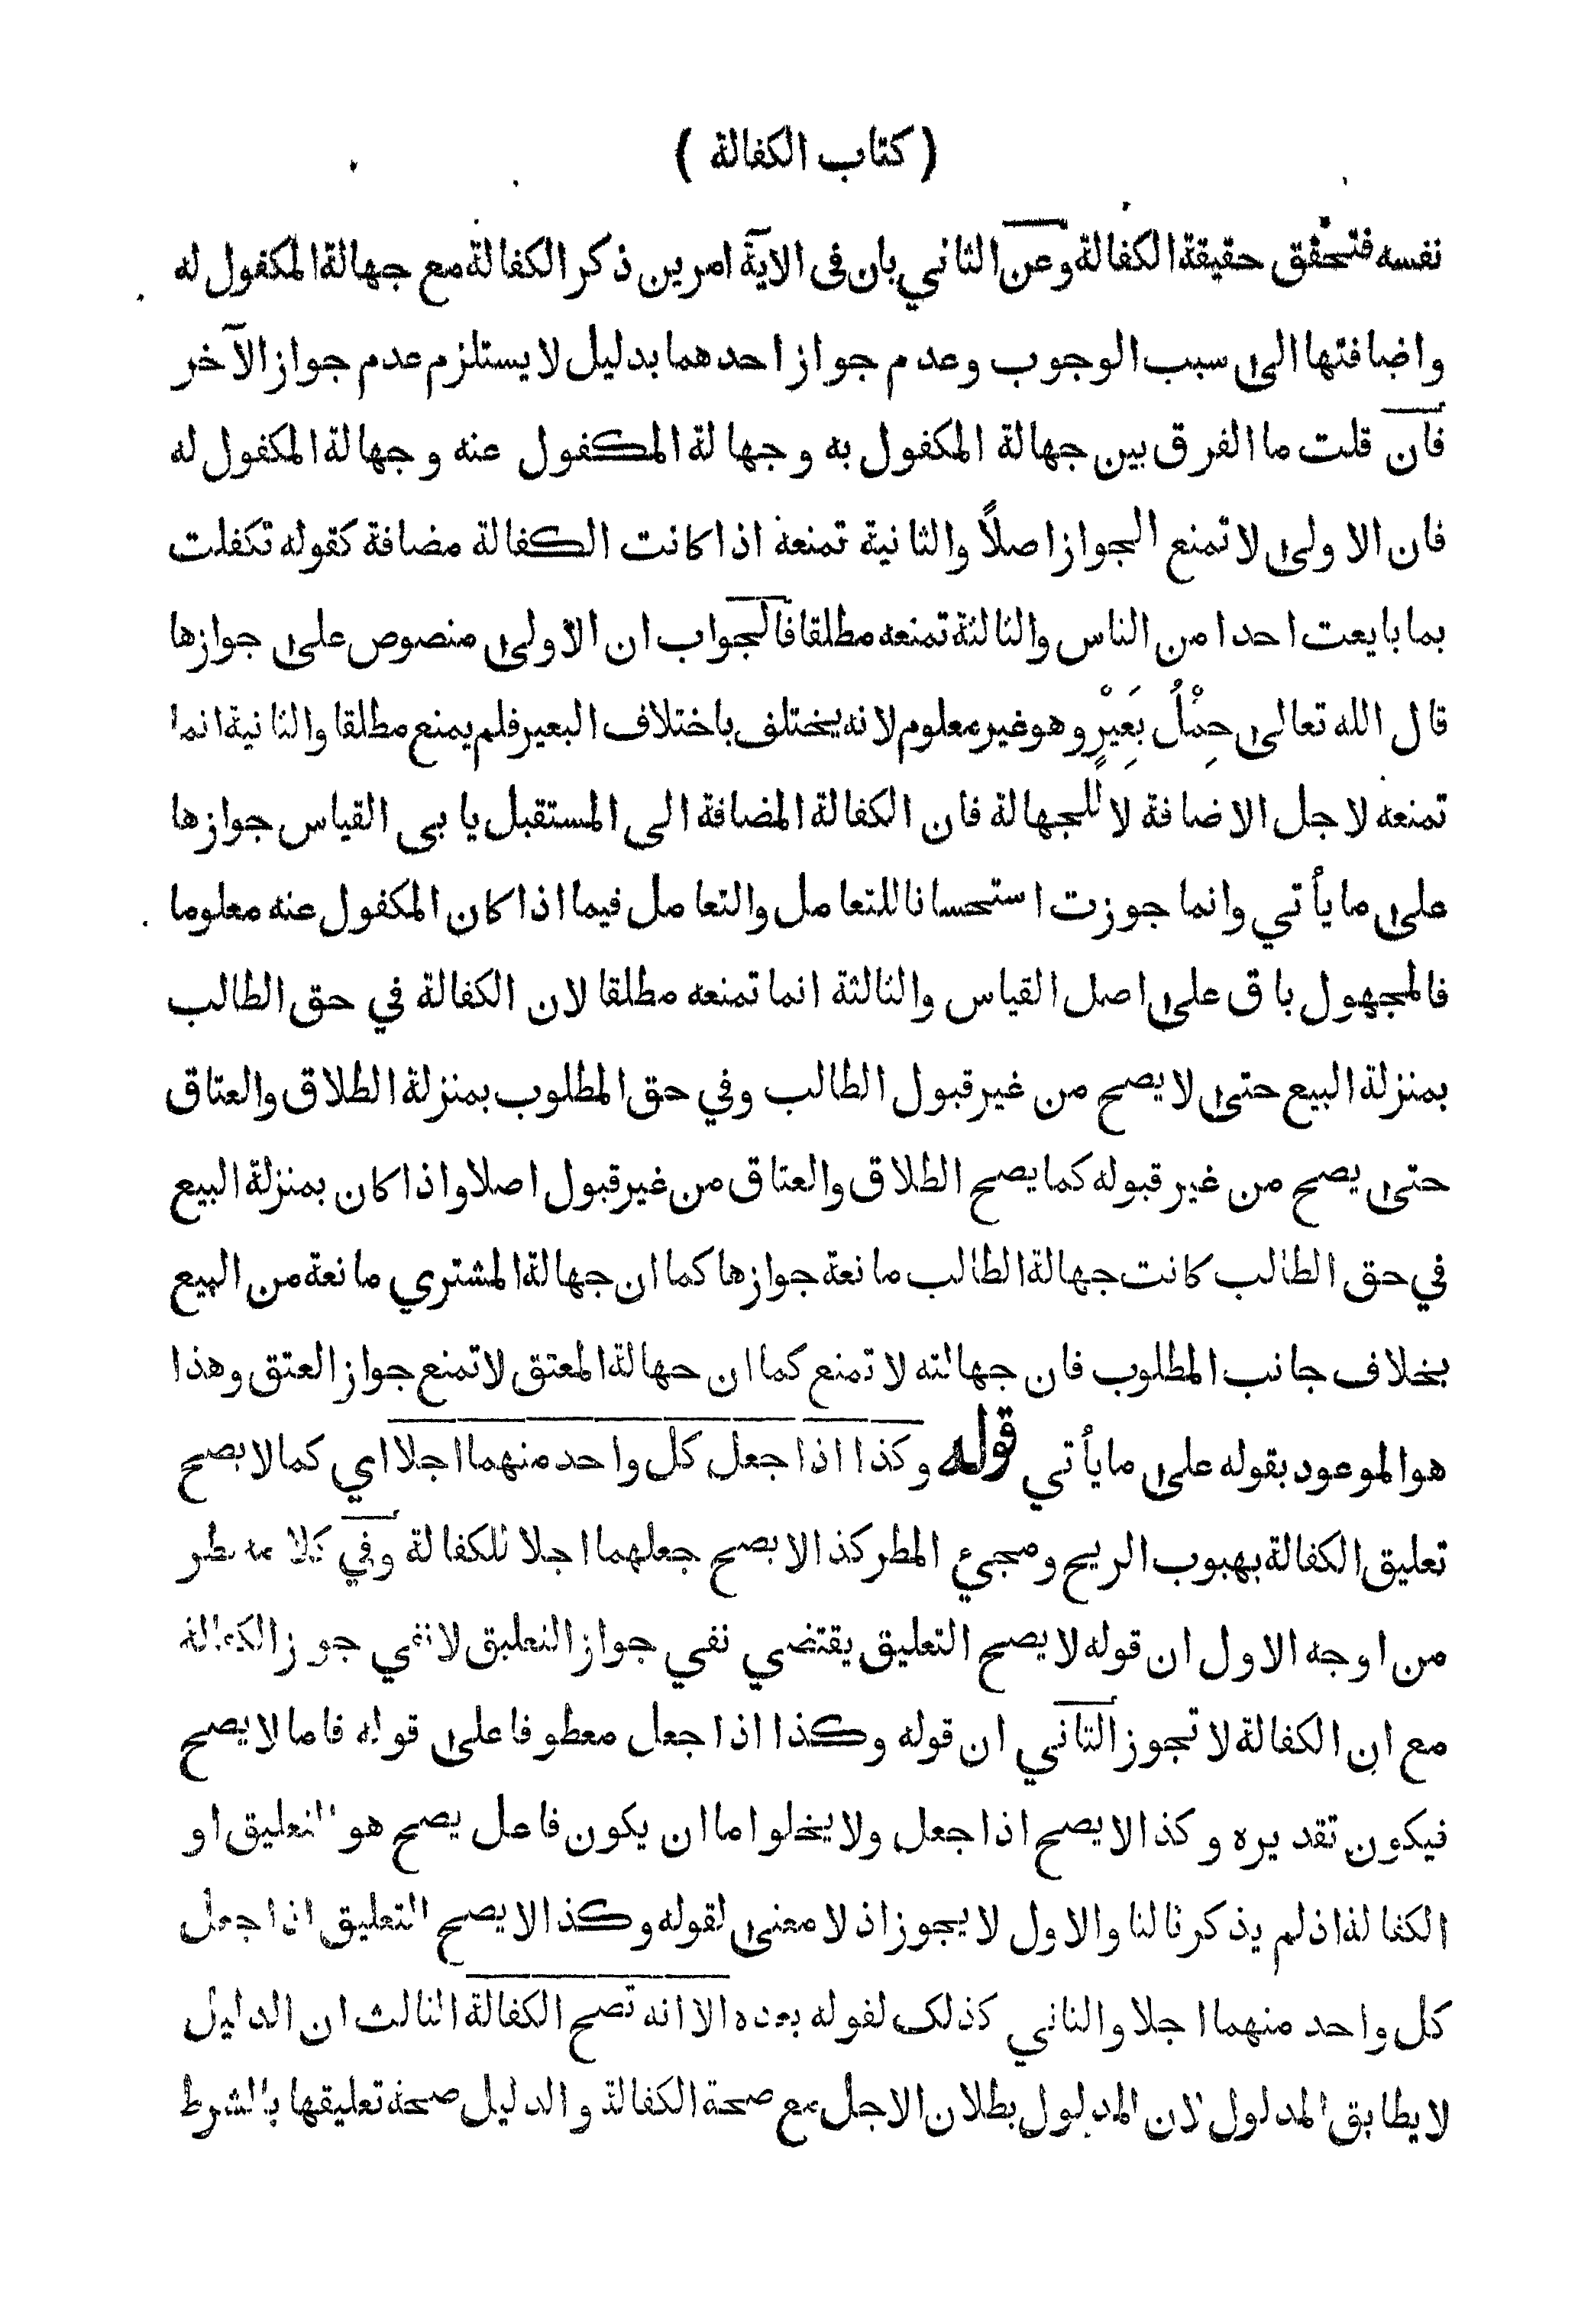 ( كتاب الكفالة )
نفسه فتحقق حقيقة الكفالة وعن الثاني بان فى الآية امرين ذكر الكفالة مع جهالة المكفول له
واضافتها الى سبب الوجوب وعدم جواز احدهما بدليل لا يستلزم عدم جواز الآخر
فان قلت ما الفرق بين جهالة المكفول به وجهالة المكفول عنه وجهالة المكفول له
فان الاولى لا تمنع الجواز اصلاً والثانية تمنعه اذا كانت الكفالة مضافة كقوله تكفلت
بما بايعت احدا من الناس والثالثة تمنعه مطلقا فالجواب ان الاولى منصوص على جوازها
قال الله تعالى حِمْلُ بَعِيْرٍ وهو غير معلوم لانه يختلف باختلاف البعير فلم يمنع مطلقا والثانية انما
تمنعه لاجل الاضافة لا للجهالة فان الكفالة المضافة الى المستقبل يابى القياس جوازها
على ما يأتي وانما جوزت استحسانا للتعامل والتعامل فيما اذا كان المكفول عنه معلوما
فالمجهول باق على اصل القياس والثالثة انما تمنعه مطلقا لان الكفالة في حق الطالب
بمنزلة البيع حتى لا يصح من غير قبول الطالب وفي حق المطلوب بمنزلة الطلاق والعتاق
حتى يصح من غير قبوله كما يصح الطلاق والعتاق من غير قبول اصلا واذا كان بمنزلة البيع
في حق الطالب كانت جهالة الطالب مانعة جوازها كما ان جهالة المشتري مانعة من البيع
بخلاف جانب المطلوب فان جهالته لا تمنع كما ان جهالة المعتق لا تمنع جواز العتق وهذا
هو الموعود بقوله على ما يأتي قوله وكذا اذا جعل كل واحد منهما اجلا اي كما لا يصح
تعليق الكفالة بهبوب الريح ومجيئ المطر كذا لا يصح جعلهما اجلا للكفالة وفي كلامه نظر
من اوجه الاول ان قوله لا يصح التعليق يقتضي نفي جواز التعليق لا نفي جواز الكفالة
مع ان الكفالة لا تجوز الثاني ان قوله وكذا اذا جعل معطوفا على قوله فاما لا يصح
فيكون تقديره وكذا لا يصح اذا جعل ولا يخلو اما ان يكون فاعل يصح هو التعليق او
الكفالة اذ لم يذكر ثالثا والاول لا يجوز اذ لا معنى لقوله وكذا لا يصح التعليق اذا جعل
كل واحد منهما اجلا والثاني كذلك لقوله بعده الا انه تصح الكفالة الثالث ان الدليل
لا يطابق المدلول لان المدلول بطلان الاجل مع صحة الكفالة والدليل صحة تعليقها بالشرط